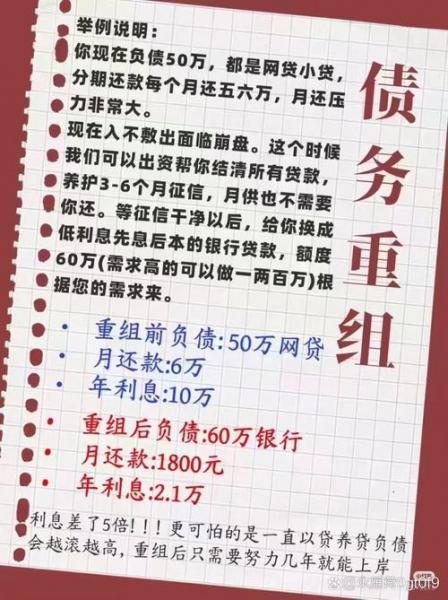 债务重组
举例说明：
你现在负债50万，都是网贷小贷，
分期还款每个月还五六万，月还压
力非常大。
现在入不敷出面临崩盘。这个时候
我们可以出资帮你结清所有贷款，
养护3-6个月征信，月供也不需要
你还。等征信干净以后，给你换成
低利息先息后本的银行贷款，额度
60万(需求高的可以做一两百万)根
据您的需求来。
• 重组前负债:50万网贷
• 月还款:6万
• 年利息:10万
• 重组后负债:60万银行
• 月还款:1800元
• 年利息:2.1万
利息差了5倍!!!更可怕的是一直以贷养贷负债
会越滚越高,重组后只需要努力几年就能上岸